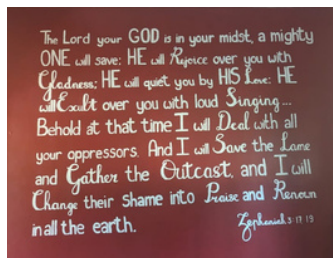 The Lord your GOD is in your midst, a mighty
ONE will save; HE will Rejoice over you with
Gladness; HE will quiet you by HIS Love; HE
will Exult over you with loud Singing...
Behold at that time I will Deal with all
your oppressors. And I will Save the Lame
and Gather the Outcast, and I will
Change their Shame into Praise and Renown
in all the earth.
Zephaniah 3:17, 19